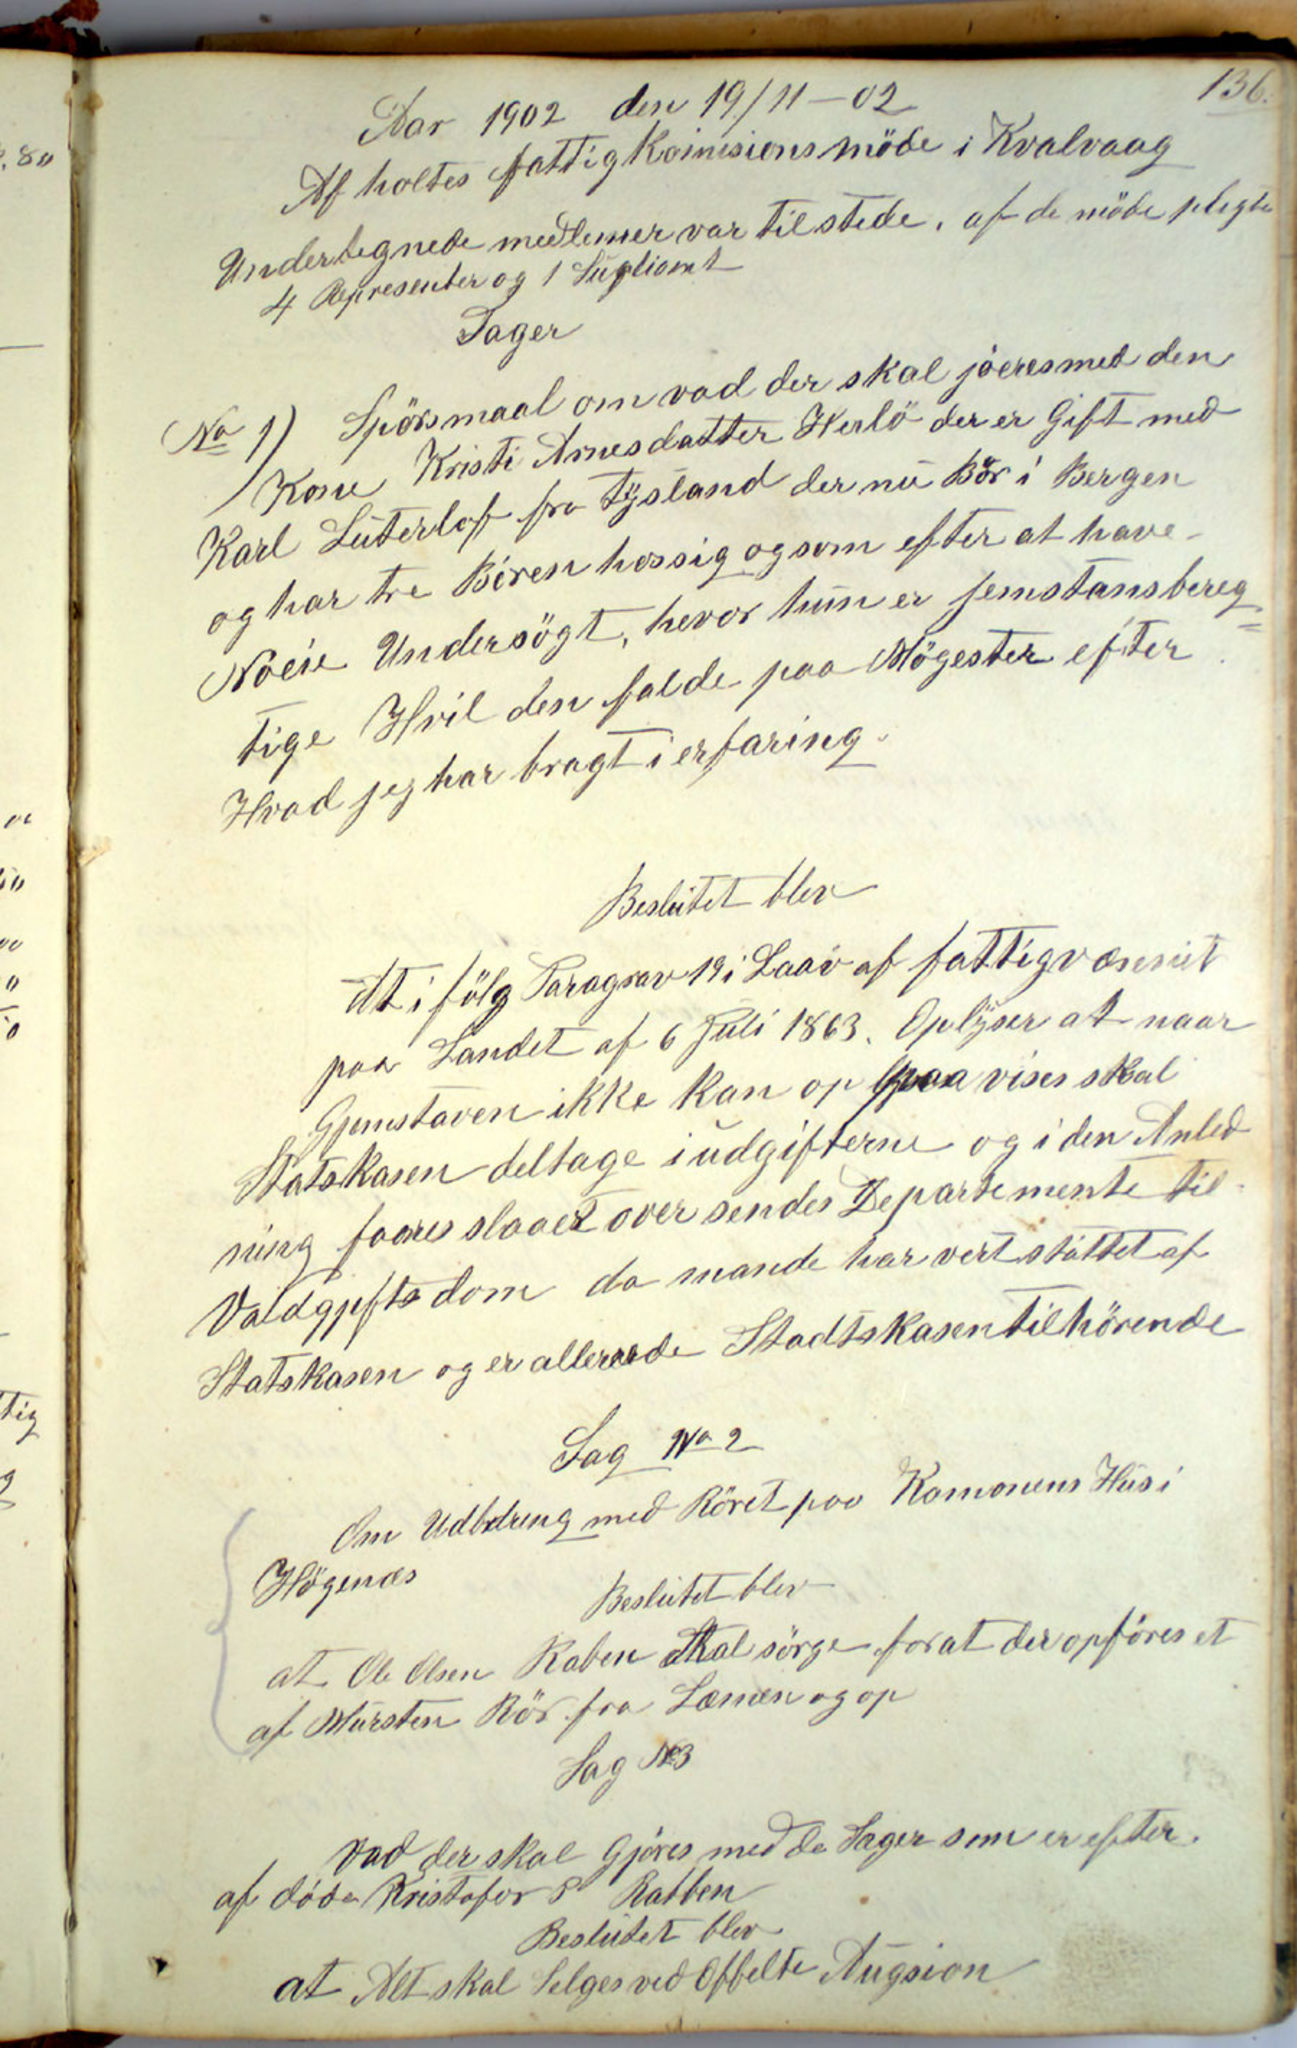 136.
Aar 1902 den 19/11-02
Af holtes fattigkomisions möde i Kvalvaag
Undertegnede medlemer var tilstede. af de möde plegte
4 Representer og 1 Supliant
Sager
No 1) Spörsmaal om vad der skal jöeres med den
Kone Kristi Arnesdatter Herlö der er Gift med
Karl Luterlof fra Tysland der nu Bör i Bergen
og har tre Bören hossig og som efter at have
Nöeie Undersögt, hevor hun er jemstansbereg=
tige Hvil den falde paa Mögester efter
Hvad jeg har bragt i erfaring.
Beslutet blev
At i fölg Paragrav 19 i Laav af fattigvæsnit
paa Landet af 6 Juli 1863. Oplyser at naar
Gjemstaven ikke kan op paavises skal
Statskasen deltage i udgifterne og i den Anled
ning faares slaaes over sendes Departemente til
Valdgjefts dom da mande har vert støttet af
Statskasen og er allerede Stadtskasen tilhörende
Sag No 2
Om Udbdring med Röret paa Komonens Hus i
Högenæs
Beslutet blev
at Ole Olsen Raben Skal sörge for at der opföres et
af Mursten Rör fra Læmen og op
Sag No 3
Vad der skal Gjöres med de Sager som er efter
af döde Kristofor P Rabben
Beslutet blev
at Alt skal Selges ved Offelte Augsion
. 80
tig